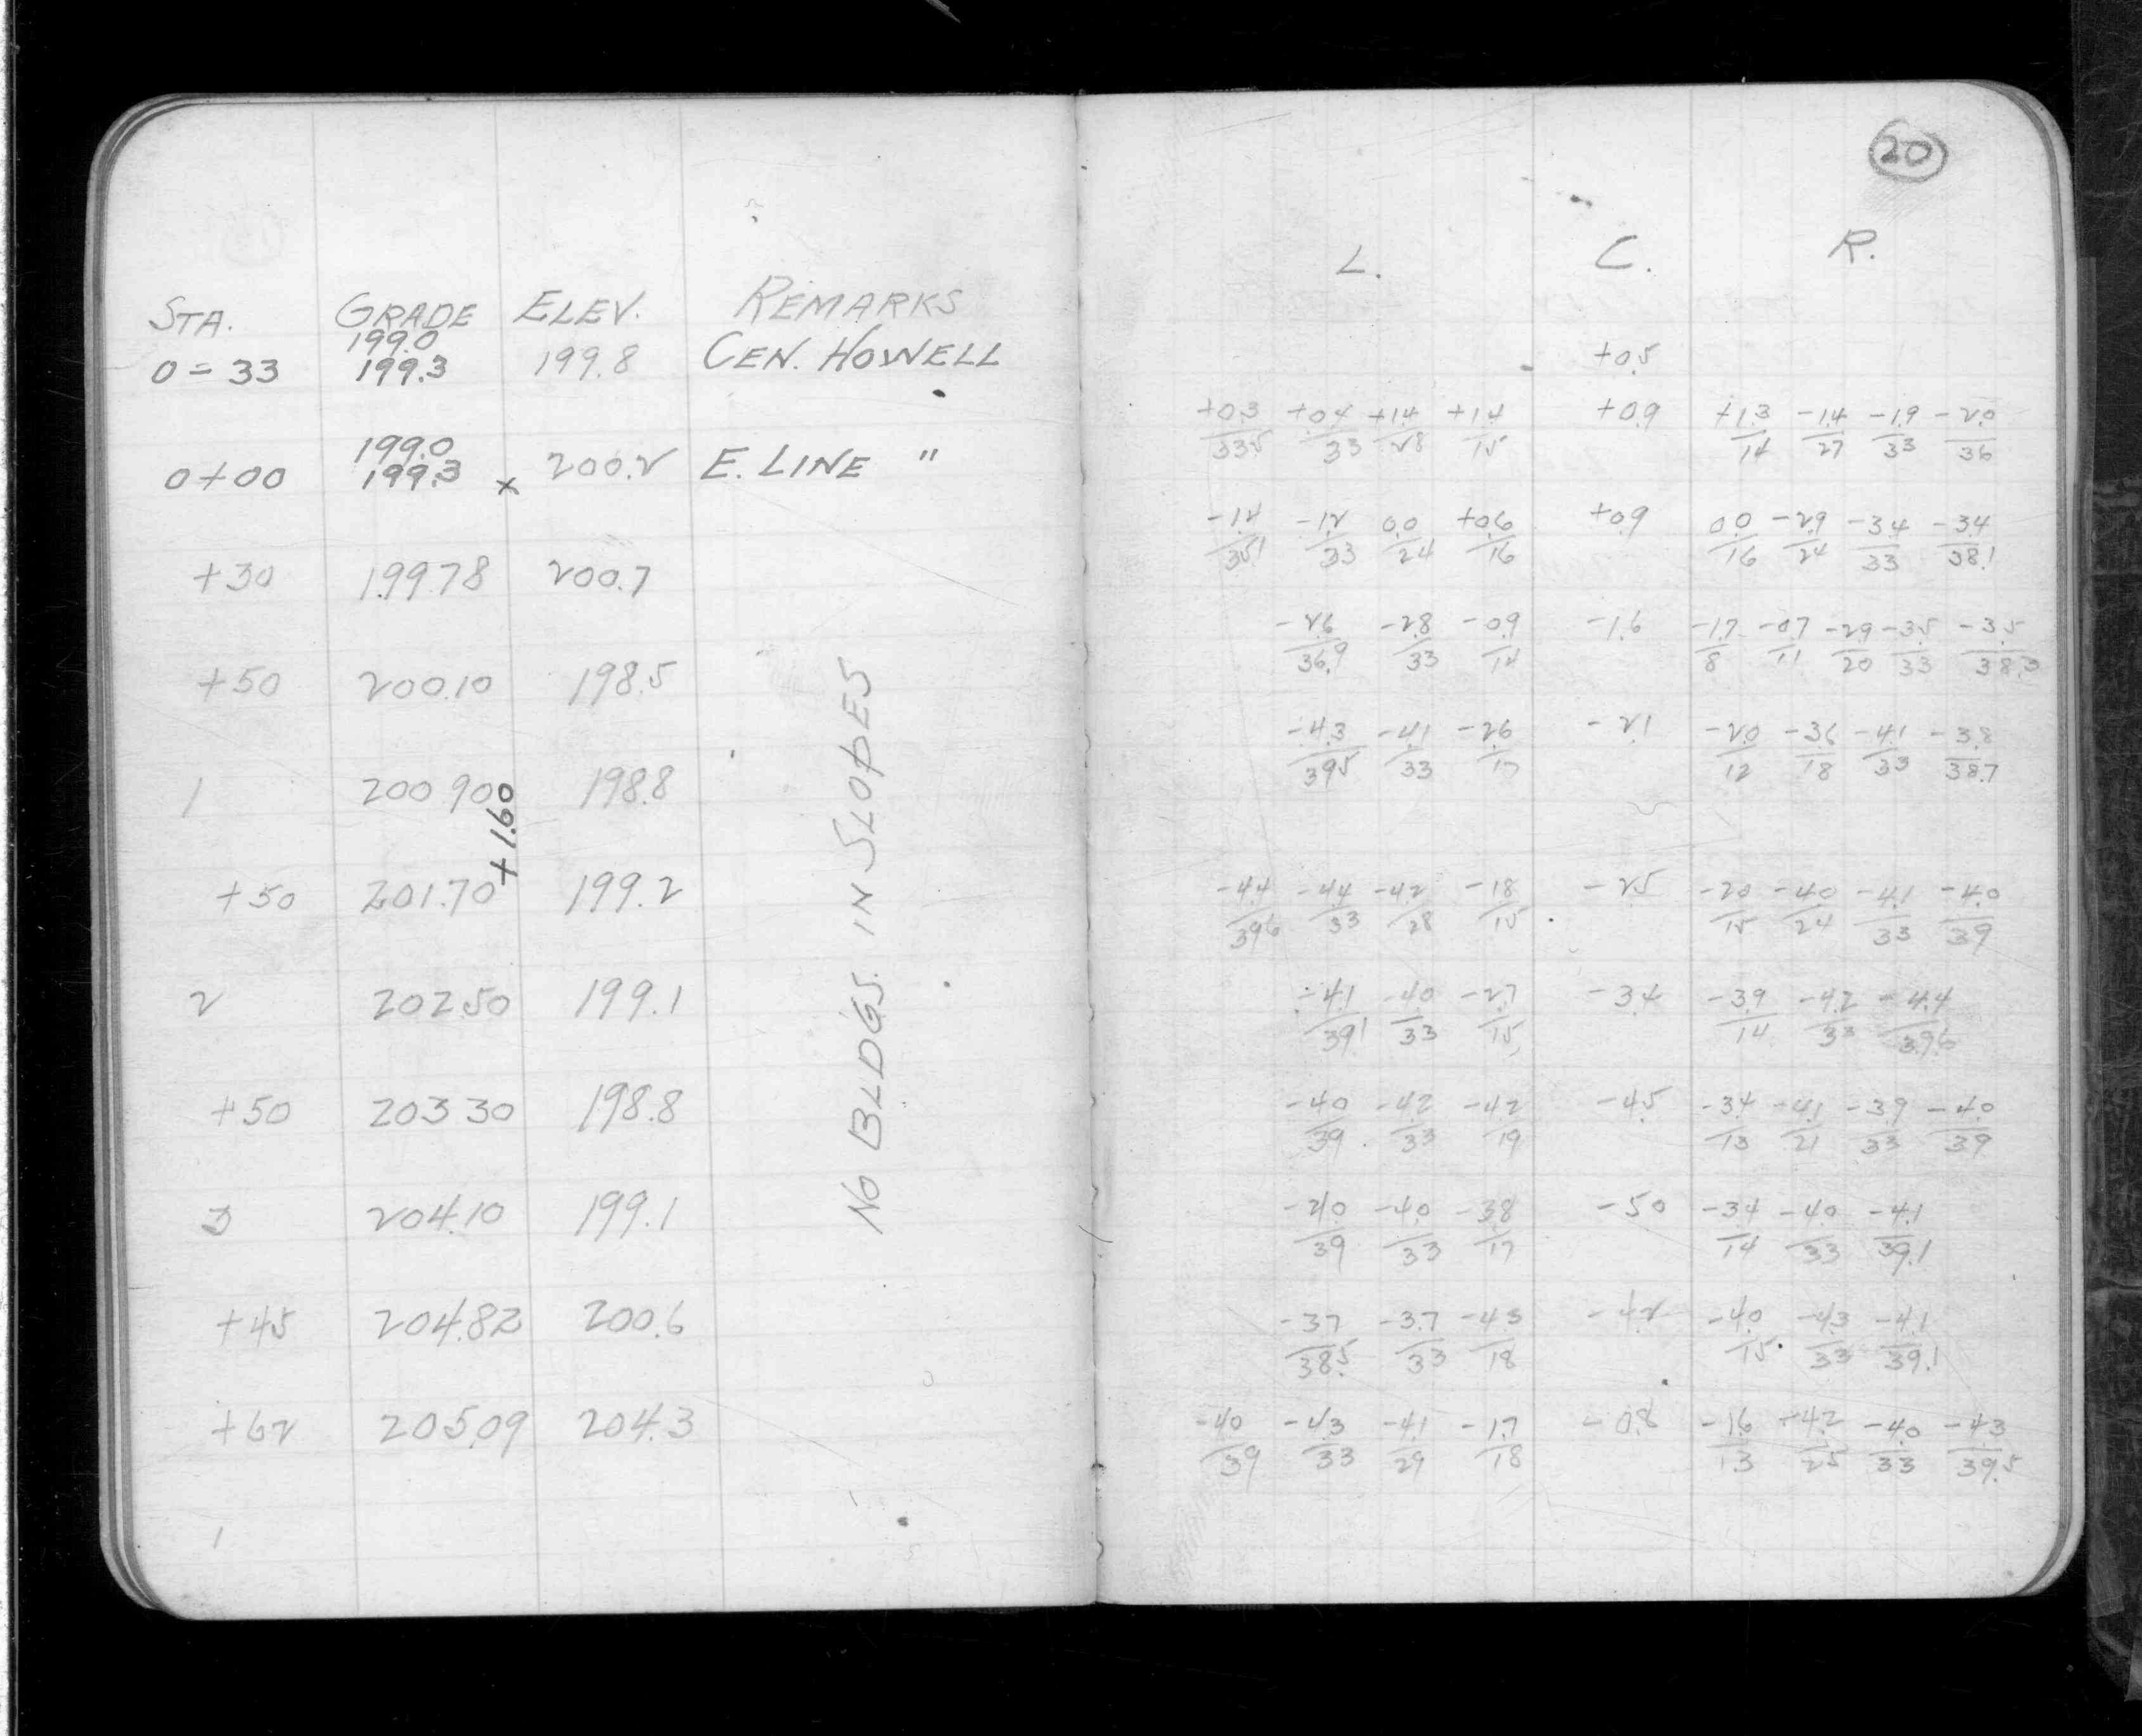 STA. GRADE ELEV. REMARKS
199.0
0=33 199.3 199.8 CEN. HOWELL
199.0
0+00 199.3 x 200.2 E. LINE "
+30 199.78 200.7
+50 200.10 198.5
1 200.90 198.8
+1.60
+50 201.70 199.2
2 202.50 199.1
+50 203 30 198.8
3 204.10 199.1
+45 204.82 200.6
+62 205.09 204.3
NO BLDGS. IN SLOPES
20
L. C. R.
+0.5
+0.3/33.5 +0.4/33 +1.4/28 +1.4/15 +0.9 +1.3/14 -1.4/27 -1.9/33 -2.0/36
-1.4/35.1 -1.2/33 0.0/24 +0.6/16 +0.9 0.0/16 -2.9/24 -3.4/33 -3.4/38.1
-2.6/36.9 -2.8/33 -0.9/14 -1.6 -1.7/8 -0.7/11 -2.9/20 -3.5/33 -3.5/38.3
-4.3/39.5 -4.1/33 -2.6/17 -2.1 -2.0/12 -3.6/18 -4.1/33 -3.8/38.7
-4.4/39.6 -4.4/33 -4.2/28 -1.8/15 -2.5 -2.0/15 -4.0/24 -4.1/33 -4.0/39
-4.1/39.1 -4.0/33 -2.7/15 -3.4 -3.9/14 -4.2/33 -4.4/39.6
-4.0/39 -4.2/33 -4.2/19 -4.5 -3.4/13 -4.1/21 -3.9/33 -4.0/39
-4.0/39 -4.0/33 -3.8/17 -5.0 -3.4/14 -4.0/33 -4.1/39.1
-3.7/38.5 -3.7/33 -4.3/18 -4.2 -4.0/15 -4.3/33 -4.1/39.1
-4.0/39 -4.3/33 -4.1/29 -1.7/18 -0.8 -1.6/13 -4.2/25 -4.0/33 -4.3/39.5